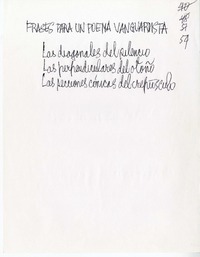 FRASES PARA UN POEMA VANGUARDISTA
Las diagonales del silencio
Las perpendiculares del otoño
Las secciones cónicas del crepúsculo
51